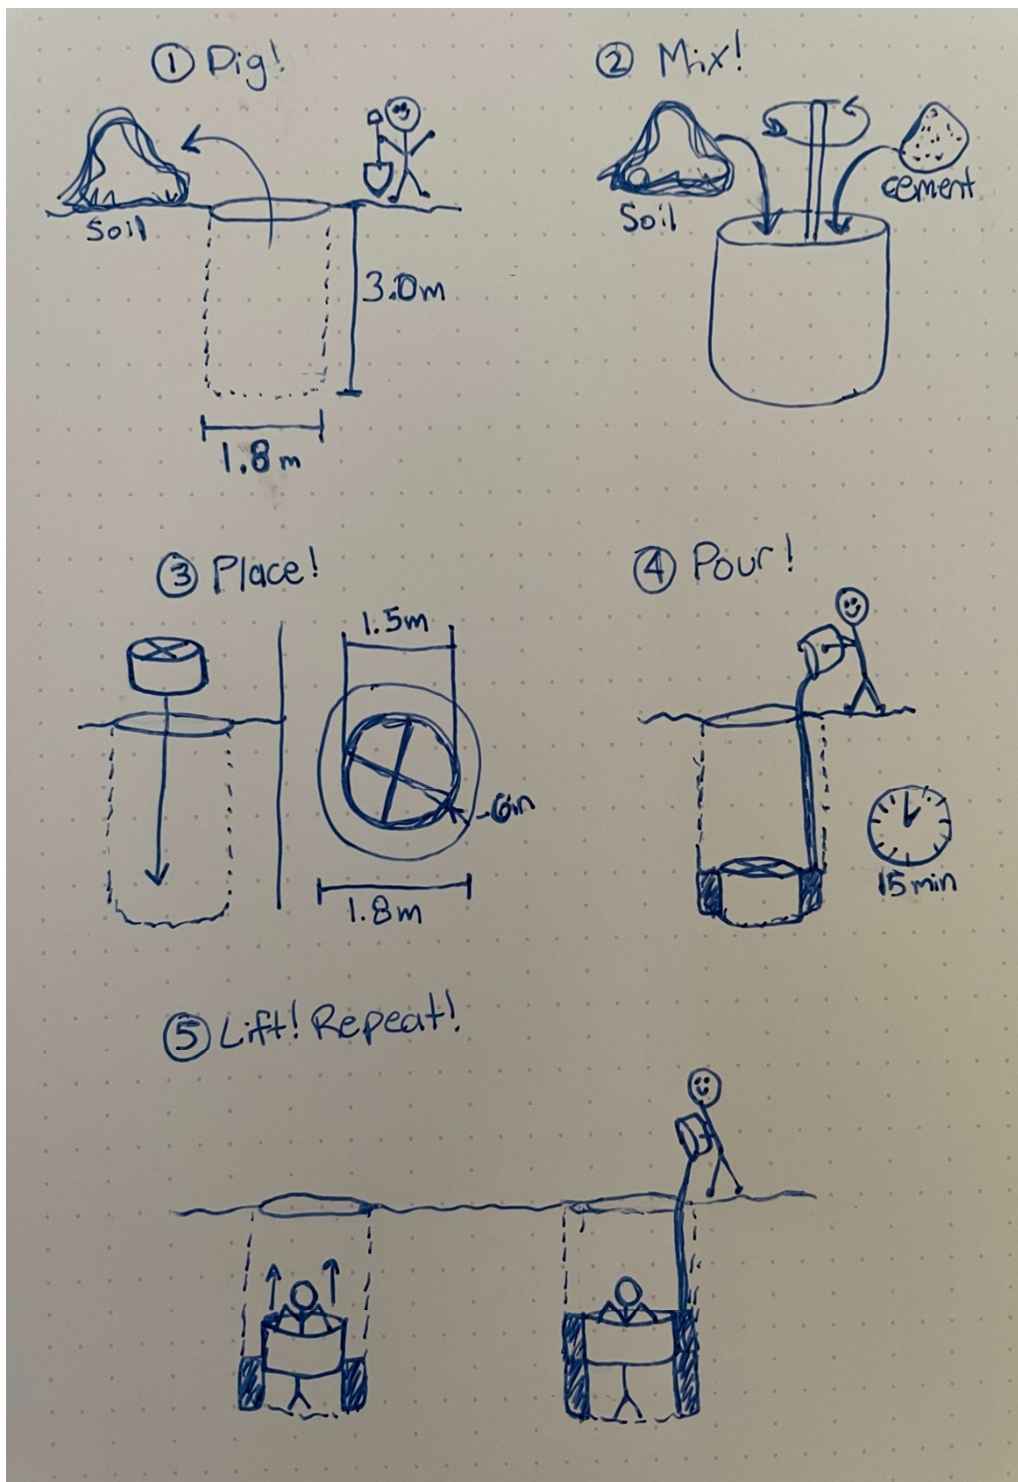 ① Dig!
Soil
3.0m
1.8m
② Mix!
Soil
cement
③ Place!
1.5m
6in
1.8m
④ Pour!
15min
⑤ Lift! Repeat!